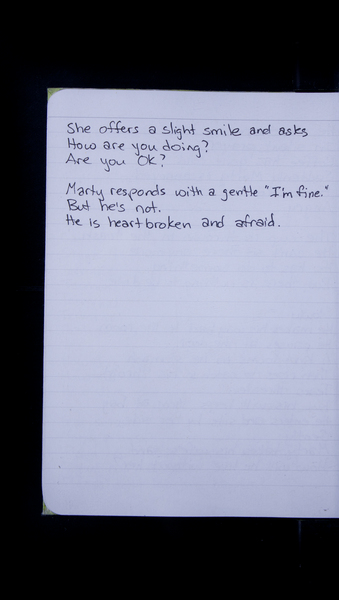 She offers a slight smile and asks,
How are you doing?
Are you OK?
Marty responds with a gentle "I'm fine."
But he's not.
He is heartbroken and afraid.